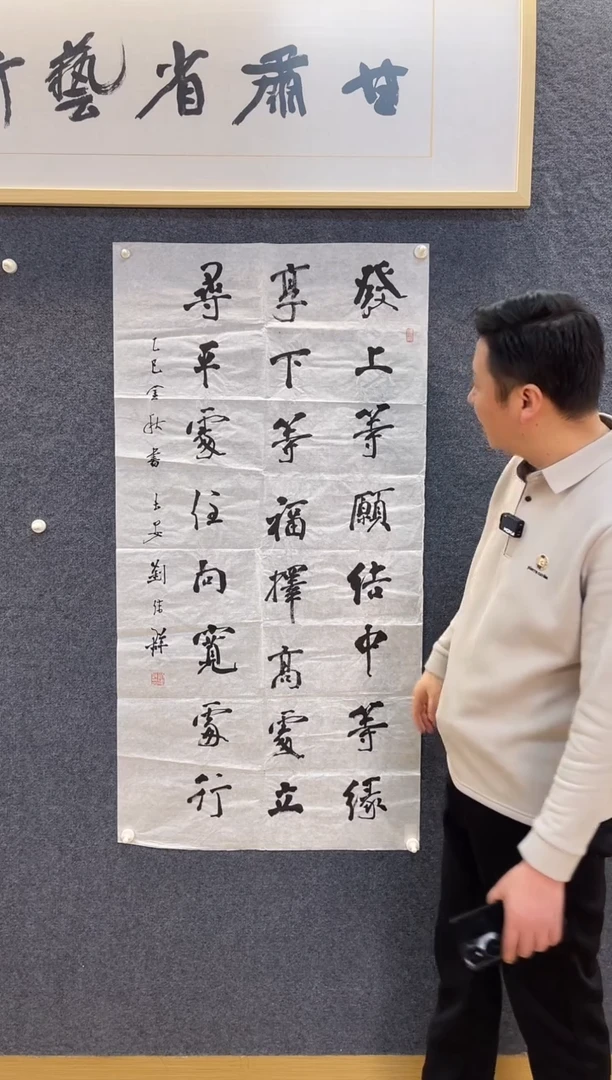 甘肅省藝
發上等願結中等緣
享下等福擇高處立
尋平處住向寬處行
乙巳金秋書 長安 劉結群